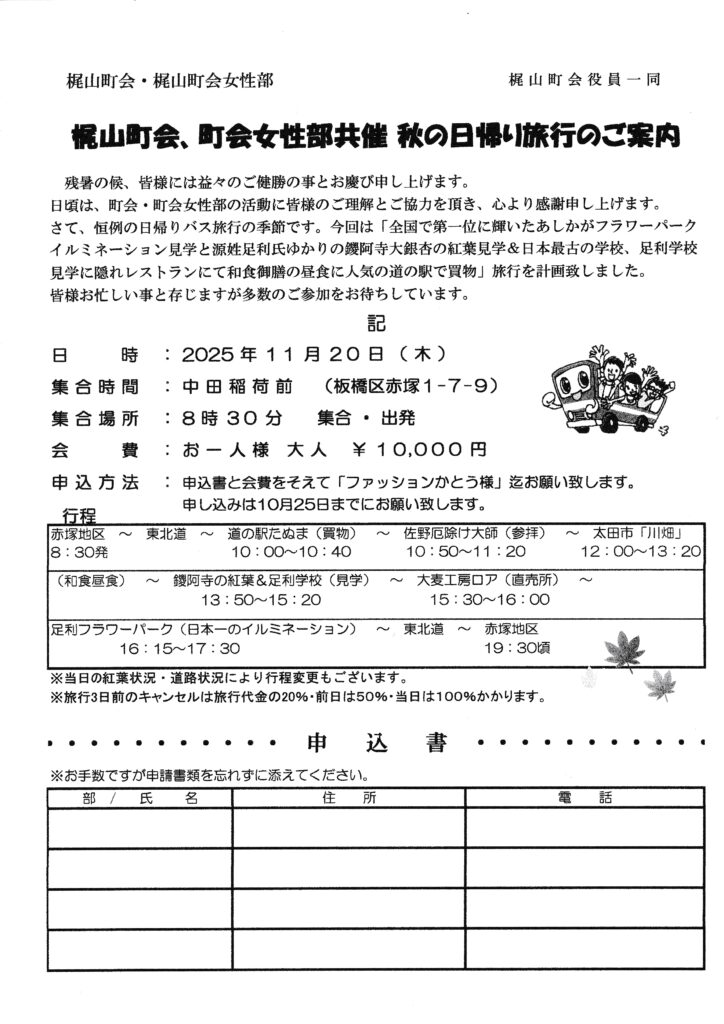 梶山町会・梶山町会女性部　　　　　梶山町会役員一同
梶山町会、町会女性部共催 秋の日帰り旅行のご案内
残暑の候、皆様には益々のご健勝の事とお慶び申し上げます。
日頃は、町会・町会女性部の活動に皆様のご理解とご協力を頂き、心より感謝申し上げます。
さて、恒例の日帰りバス旅行の季節です。今回は「全国で第一位に輝いたあしかがフラワーパーク
イルミネーション見学と源姓足利氏ゆかりの鑁阿寺大銀杏の紅葉見学＆日本最古の学校、足利学校
見学に隠れレストランにて和食御膳の昼食に人気の道の駅で買物」旅行を計画致しました。
皆様お忙しい事と存じますが多数のご参加をお待ちしています。
記
日　　時　：　２０２５年１１月２０日（木）
集合時間　：　中田稲荷前　（板橋区赤塚１-７-９）
集合場所　：　８時３０分　集合・出発
会　　費　：　お一人様　大人　￥１０,０００円
申込方法　：　申込書と会費をそえて「ファッションかとう様」迄お願い致します。
申し込みは１０月２５日までにお願い致します。
行程
赤塚地区　～　東北道　～　道の駅たぬま（買物）　～　佐野厄除け大師（参拝）　～　太田市「川畑」
８：３０発　１０：００～１０：４０　１０：５０～１１：２０　１２：００～１３：２０
（和食昼食）　～　鑁阿寺の紅葉＆足利学校（見学）　～　大麦工房ロア（直売所）　～
１３：５０～１５：２０　１５：３０～１６：００
足利フラワーパーク（日本一のイルミネーション）　～　東北道　～　赤塚地区
１６：１５～１７：３０　１９：３０頃
※当日の紅葉状況・道路状況により行程変更もございます。
※旅行３日前のキャンセルは旅行代金の２０％・前日は５０％・当日は１００％かかります。
・・・・・・・・・・・・ 申　込　書 ・・・・・・・・・・・・
※お手数ですが申請書類を忘れずに添えてください。
部　/　氏　名　　住　所　　電　話